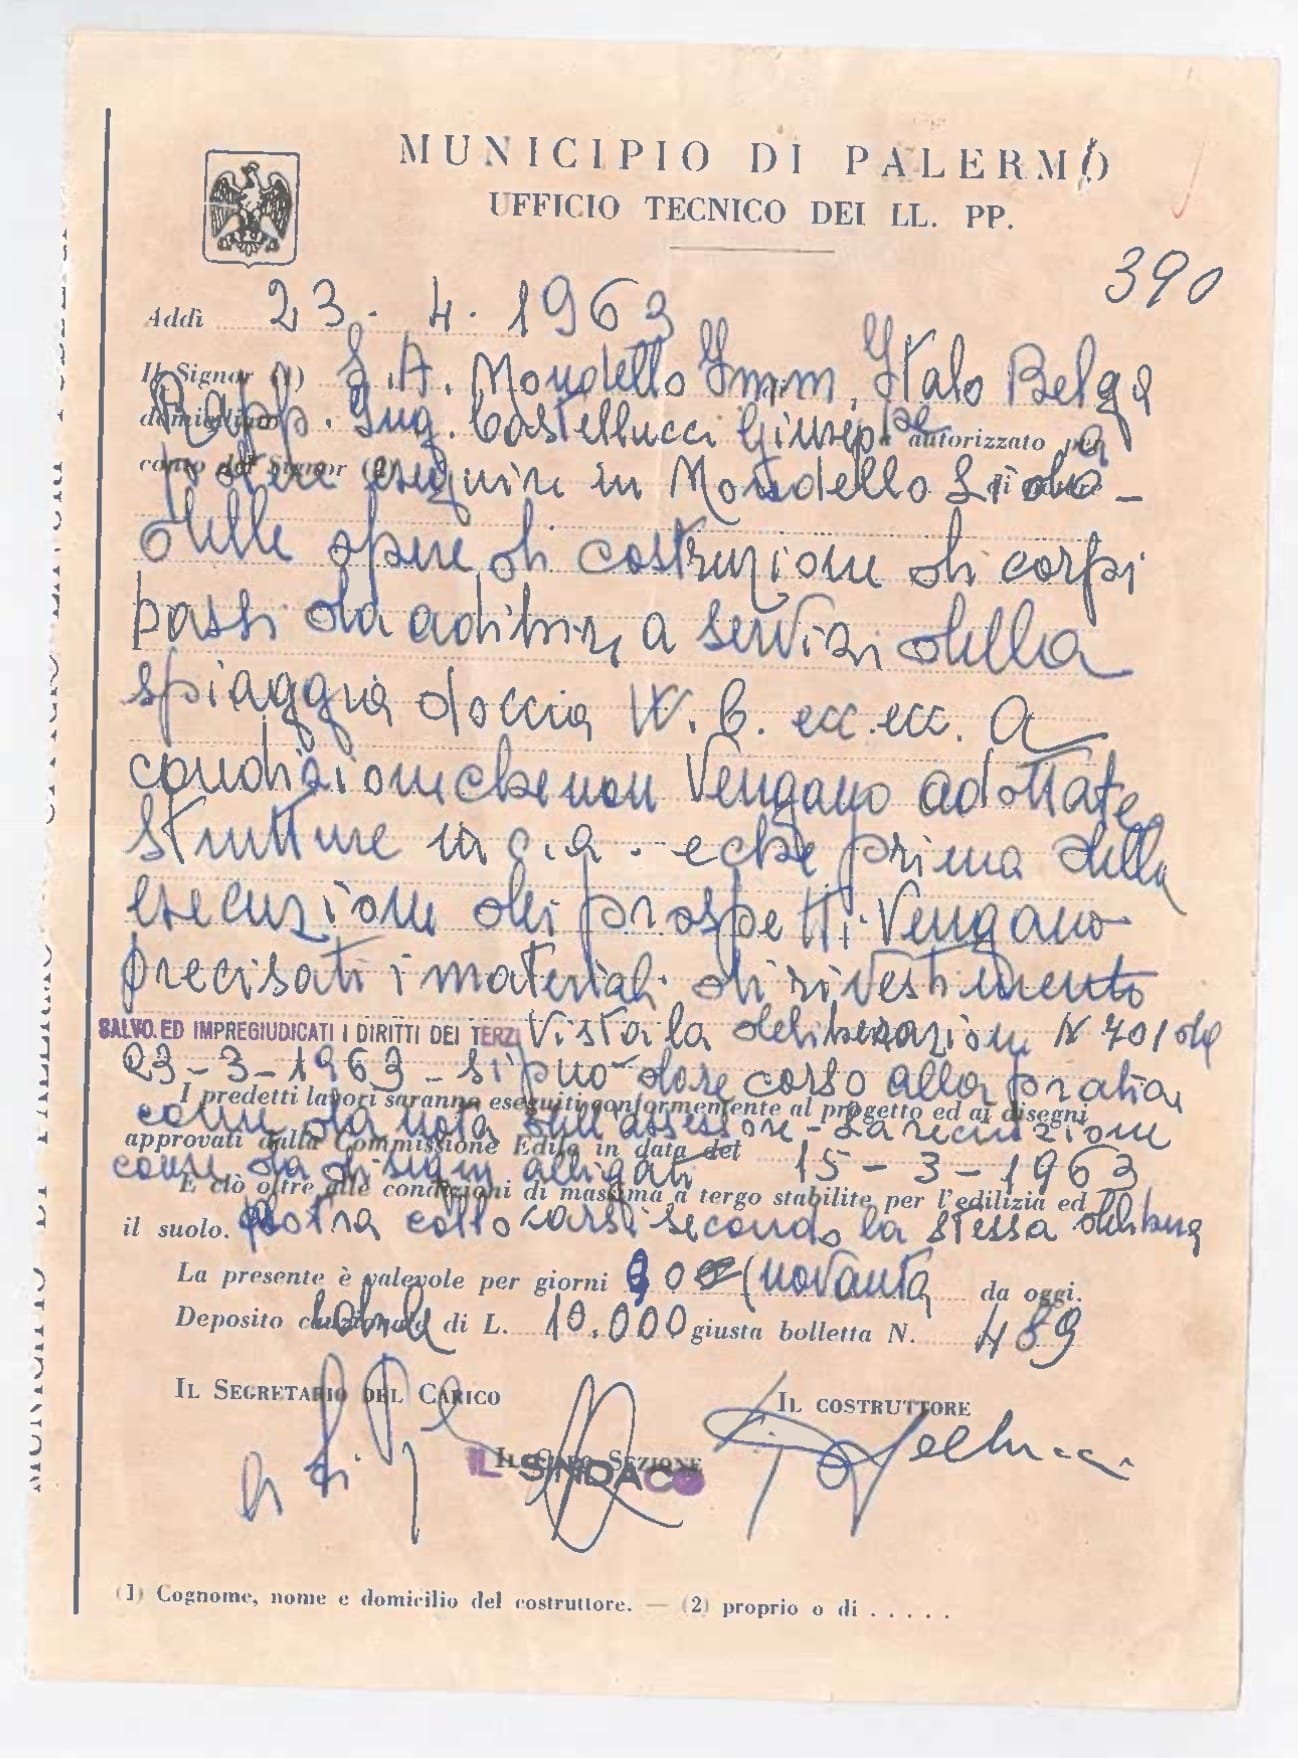 MUNICIPIO DI PALERMO
UFFICIO TECNICO DEI LL. PP.
390
Addì 23 - 4 - 1963
Il Signor (1) S.A. Mondello Imm. Italo Belga
domiciliato Rapp. Ing. Castellucci Giuseppe autorizzato per a
conto del Signor (2) potere eseguire in Mondello Lido -
delle opere di costruzione di corpi
bassi da adibire a servizi della
spiaggia doccia W.C. ecc. ecc. a
condizione che non vengano adottate
strutture in c.a. e che prima della
esecuzione dei prospetti vengano
precisati i materiali di rivestimento
SALVO ED IMPREGIUDICATI I DIRITTI DEI TERZI Vista la deliberazione N 701 del
23-3-1963 - si può dare corso alla pratica
I predetti lavori saranno eseguiti conformemente al progetto ed ai disegni
come da nota dell'assessore - La recinzione
approvati dalla Commissione Edile in data del 15-3-1963
come da disegni allegati
E ciò oltre alle condizioni di massima a tergo stabilite per l'edilizia ed
il suolo. potrà collocarsi secondo la stessa delibera
La presente è valevole per giorni 90 (novanta da oggi.
Deposito cauzionale di L. 10.000 giusta bolletta N. 489
IL SEGRETARIO DEL CARICO
IL COSTRUTTORE
IL CAPO SEZIONE
IL SINDACO
(1) Cognome, nome e domicilio del costruttore. — (2) proprio o di . . . . .